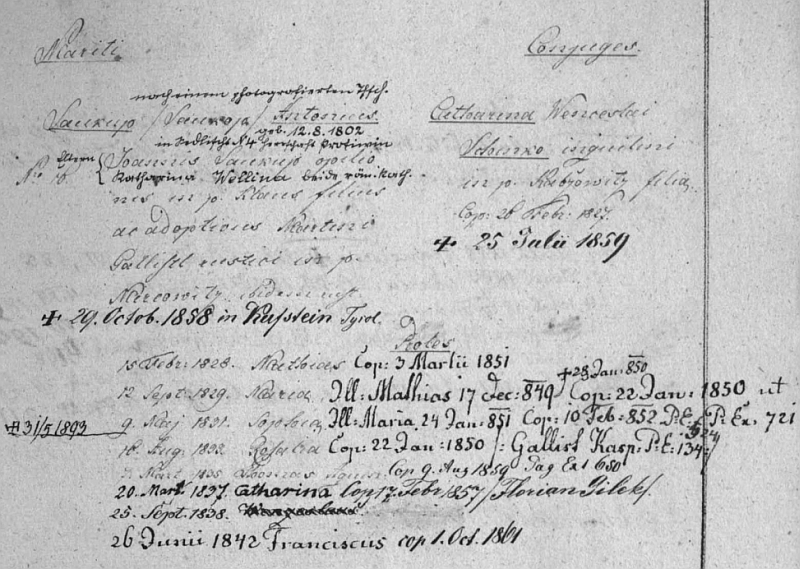 Mariti.
Conjuges.
nach einem photografierten Pfsch.
Saukup / Saukoja / Antonius
geb. 12.8.1802
in Sedlischt № 4 Herrschaft Protiwin
Eltern Joannis Saukup opilio
Katharina Wollina beide röm. kath.
nes in p. Klaus filius
ac adoptivus Martini
Gallistl rustici in p.
+ 29. Octob. 1858 in Kufstein Tyrol.
Catharina Wenceslai
Schinko inquilini
in p. filia.
Cop: 26 Febr: 1827.
+ 25 Julii 1859
Proles
15 Febr: 1828. Mathias Cop: 3 Martii 1851
+ 28 Jan: 850
12 Sept. 1829. Maria, Ill: Mathias 17 Dec: 849 / Cop: 22 Jan: 1850 ut
+ 31/5 1893 9. Maj 1831. Sophia, Ill: Maria 24 Jan: 851 Cop: 10 Feb: 852 P: Ex. 721
18. Aug. 1833. Rosalia Cop: 22 Jan: 1850 /: Gallistl Kasp: P: E: 134 :/
Mart. 1835 Thomas Cop 9. Aug 1859 Pag Ex 1 650
20. Mart. 1837. Catharina Cop 17. Febr 1857 / Florian
25. Sept. 1838.
26 Junii 1842 Franciscus cop 1. Oct. 1861